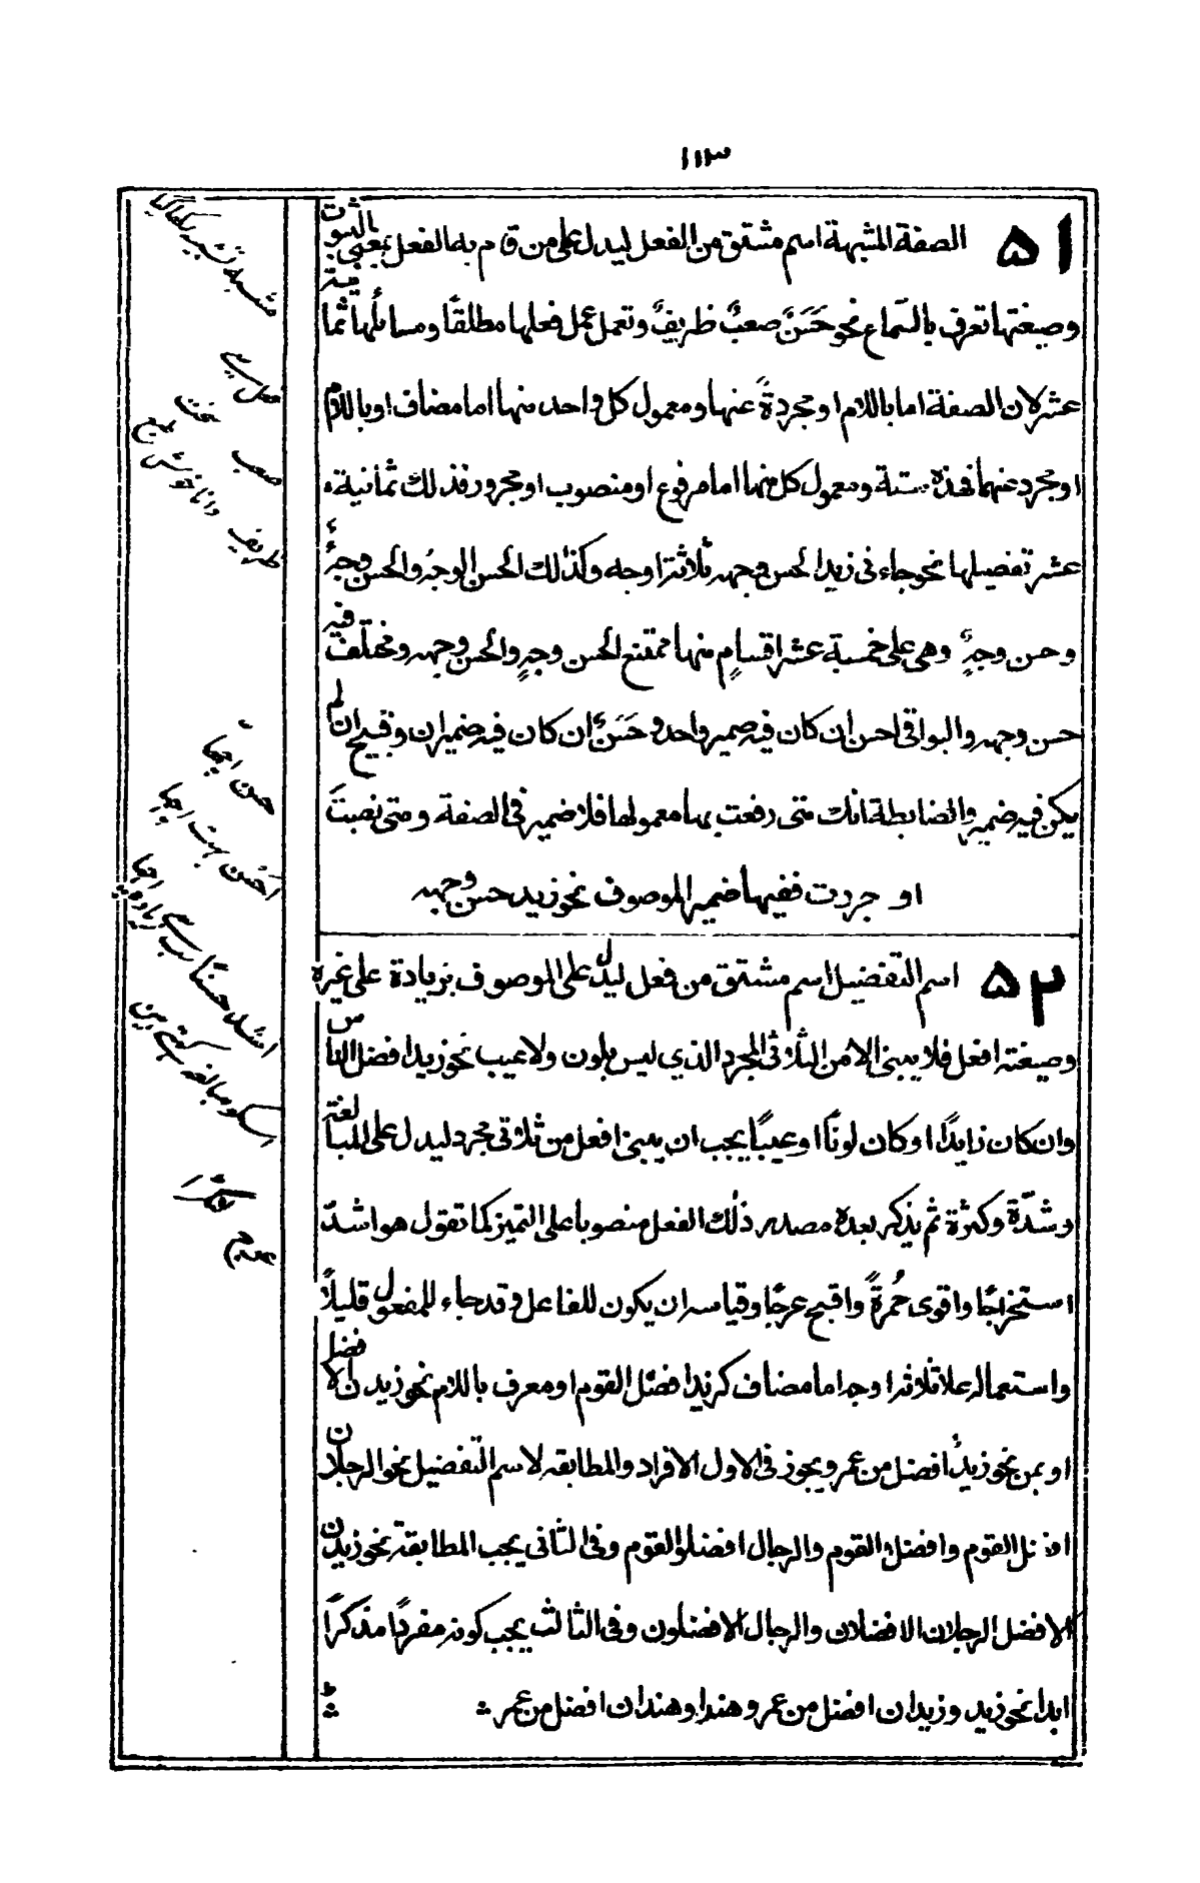 ١١٣
٥١ الصفة المشبهة اسم مشتق من الفعل ليدل على من قام به الفعل بمعنى الثبوت
وصيغتها تعرف بالسماع نحو حَسَنٌ صعبٌ ظريفٌ وتعمل عمل فعلها مطلقًا ومسائلُها ثمانية
عشر لان الصفة اما باللام او مجردةً عنها ومعمول كل واحد منها اما مضاف او باللام
او مجرد عنهما فهذه ستة ومعمول كل منها اما مرفوع او منصوب او مجرور فذلك ثمانية
عشر تفصيلها نحو جاءنی زید الحسن وجهه ثلاثة اوجه وكذلك الحسن الوجهُ والحسن وجهٌ
وحسن وجهٌ وهی علی خمسة عشر اقسامٍ منها ممتنع الحسن وجهٍ والحسن وجهه ومختلف فيه
حسن وجهه والبواقی احسن ان كان فيه ضمير واحد وحَسَنٌ ان كان فيه ضميران وقبيح ان لم
يكن فيه ضمير والضابطة انك متى رفعت بها معمولها فلا ضمير فی الصفة ومتى نصبتَ
او جررت ففيها ضمير الموصوف نحو زيد حسن وجهه
٥٢ اسم التفضيل اسم مشتق من فعل ليدل علی الموصوف بزيادة علی غيره
وصيغته افعل فلا يبنى الا من الثلاثی المجرد الذي ليس بلون ولا عيب نحو زيد افضل الناس
وان كان زايدًا او كان لونًا او عيبًا يجب ان يبنى افعل من ثلاثی مجرد ليدل علی المبالغة
وشدّة وكثرة ثم يذكر بعده مصدر ذلك الفعل منصوبا علی التميز كما تقول هو اشدّ
استخراجًا واقوى حُمرةً واقبح عرجًا وقياسه ان يكون للفاعل وقد جاء للمفعول قليلًا
واستعماله علا ثلاثة اوجه اما مضاف كزيد افضل القوم او معرف باللام نحو زيدن الافضل
او بمن نحو زيدٌ افضل من عمر ويجوز فی الاول الافراد والمطابقه لاسم التفضيل نحو الرجلان
افضل القوم وافضلا القوم والرجال افضلوا القوم وفی الثانی يجب المطابقة نحو زيدن
الافضل الرجلان الافضلان والرجال الافضلون وفی الثالث يجب كونه مفردًا مذكرًا
ابدا نحو زيد وزيدان افضل من عمر وهند وهندان افضل من عمر
فعل سے
صعب سخت
ظريف دانا خوش طبع
حسن اچھا
احسن بہت اچھا
اشد حسنًا سب سے زیادہ اچھا
اسکو مبالغہ کہتے ہیں
عرج لنگڑا